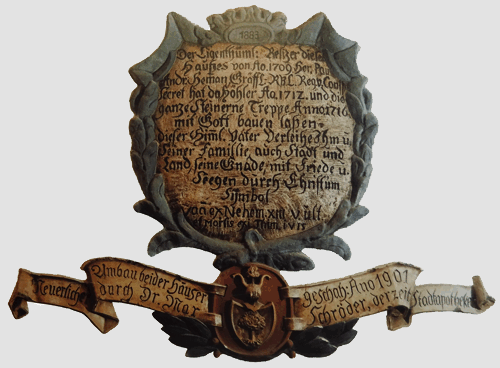 1893
Der Eigenthüml: Besitzer dieses
Haußes von Ao. 1709 Her: Pau
Dr. Heman Gräffl. Rßl. Regr. Con
cret hat da hohler Ao. 1712. und die
ganze Steinerne Treppe Anno 1716
mit Gott bauen laßen
dieser Himl. Vater Verleihe Ihm u.
Seiner Familie, auch Stadt und
Land seine Gnade, mit Friede u.
Seegen durch Christum
Simbol
ex Nehem. XIII Vult
Neuerlicher Umbau beider Häuser geschah: Ano 1901
durch Dr. Max Schröder, derzeit Stadtapotheker